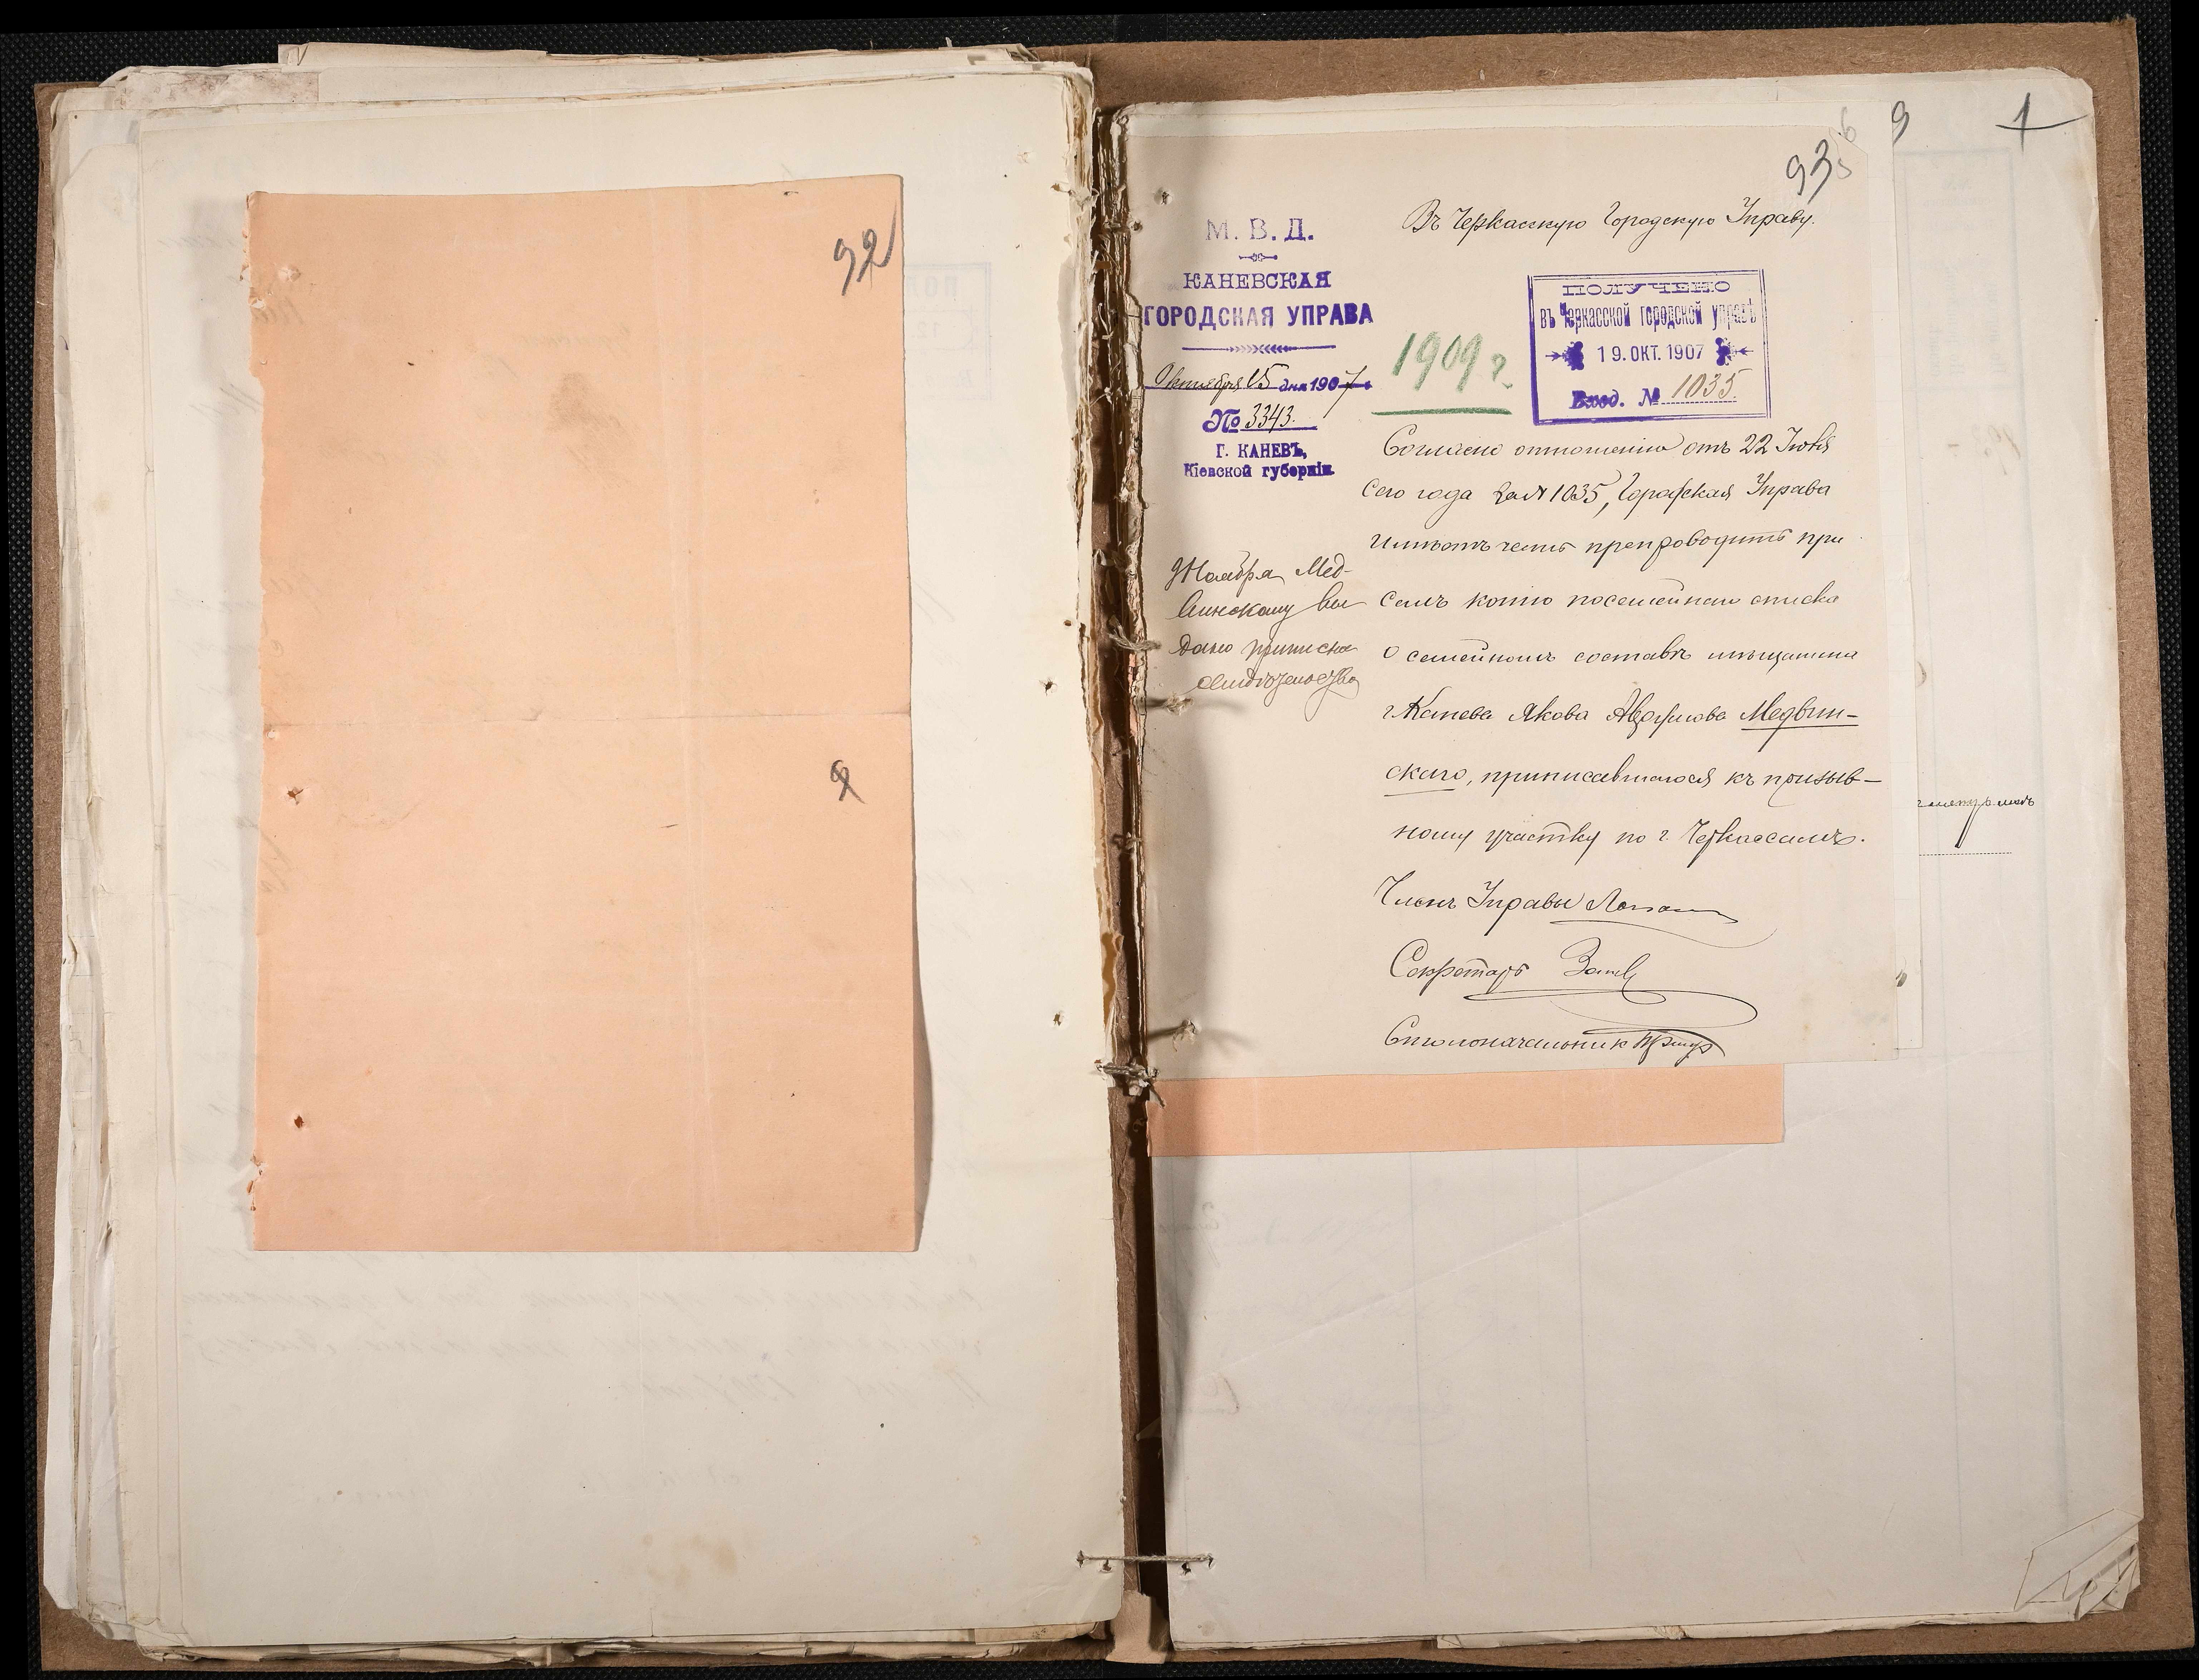 92
9
93
6
9
1
Въ Черкасскую Городскую Управу.
М. В. Д.
КАНЕВСКАЯ
ГОРОДСКАЯ УПРАВА
Октября 15 дня 1907 г.
№ 3343.
Г. КАНЕВЪ,
Кіевской губерніи.
1909 г.
ПОЛУЧЕНО
въ Черкасской городской управѣ
19. ОКТ. 1907
Вход. № 1035.
Согласно отношенію отъ 22 Іюня
сего года за № 1035, Городская Управа
имѣетъ честь препроводить при
семъ копію посемейнаго списка
о семейномъ составѣ мѣщанина
г. Канева Якова Медвин-
скаго, приписавшагося къ призыв-
ному участку по г. Черкассамъ.
Членъ Управы
Секретарь
Столоначальникъ
9 Ноября Мед-
винскому вы
дано приписн
свидѣтельство